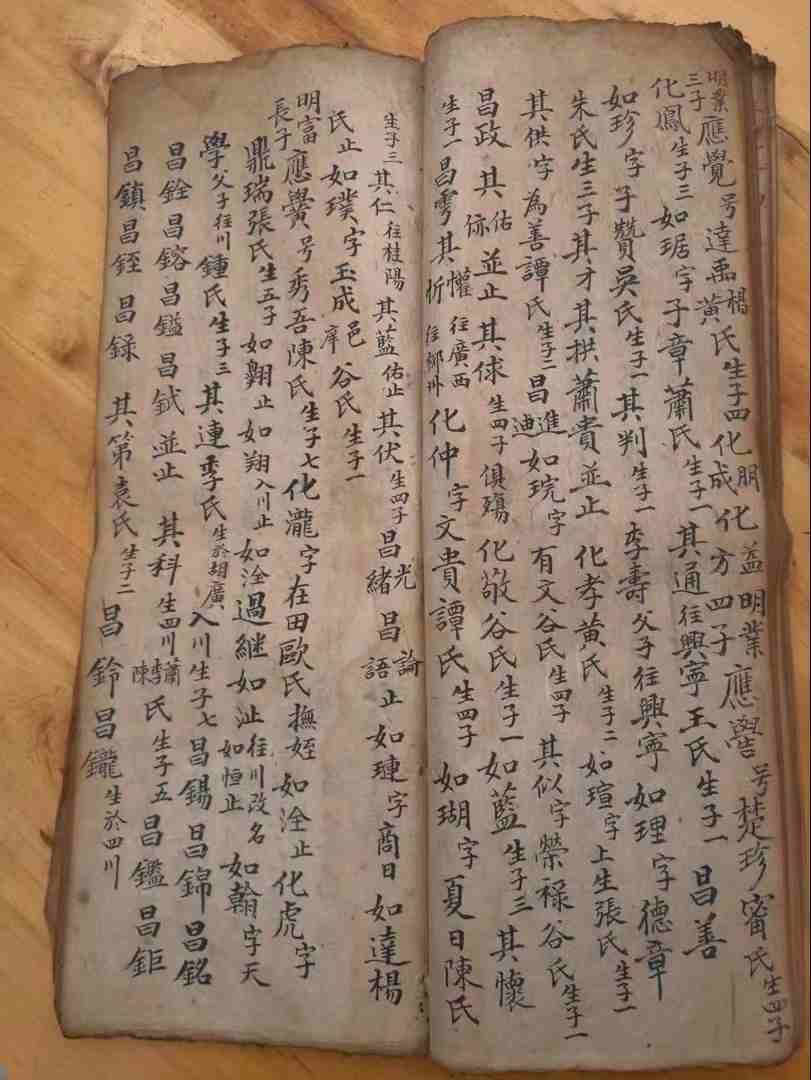 明業三子應覺号達禹楊黃氏生子四化朋成化益方明業四子應嚳号楚珍甯氏生四子
化鳳生子三如琚字子章蕭氏生子一其通往興寧王氏生子一昌善
如珍字子贊吳氏生子一其判生子一李壽父子往興寧如理字德章
朱氏生三子其才其拱蕭貴並止化孝黃氏生子二如瑄字上生張氏生子一
其供字為善譚氏生子二昌進迪如琓字有文谷氏生四子其似字榮祿谷氏生子一
昌政其佑㑊並止其俅生四子俱殤化敬谷氏生子一如藍生子三其懷
生子一昌雩其忻懽往廣西往郴州化仲字文貴譚氏生四子如瑚字夏日陳氏
生子三其仁往桂陽其藍佑止其伏生四子昌光緒昌論語止如璉字商日如達楊
氏止如璞字玉成邑庠谷氏生子一
明富長子應黌号秀吾陳氏生子七化瀧字在田歐氏撫姪如洤止化虎字
鼎瑞張氏生五子如翺止如翔入川止如洤過継如沚往川改名如恒止如翰字天
學父子往川鍾氏生子三其連季氏生於胡廣入川生子七昌錫昌錦昌銘
昌銓昌鎔昌鎰昌鉽並止其科生四川蕭李陳氏生子五昌鑑昌鉅
昌鎮昌銍昌録其第袁氏生子二昌鈴昌鑨生於四川